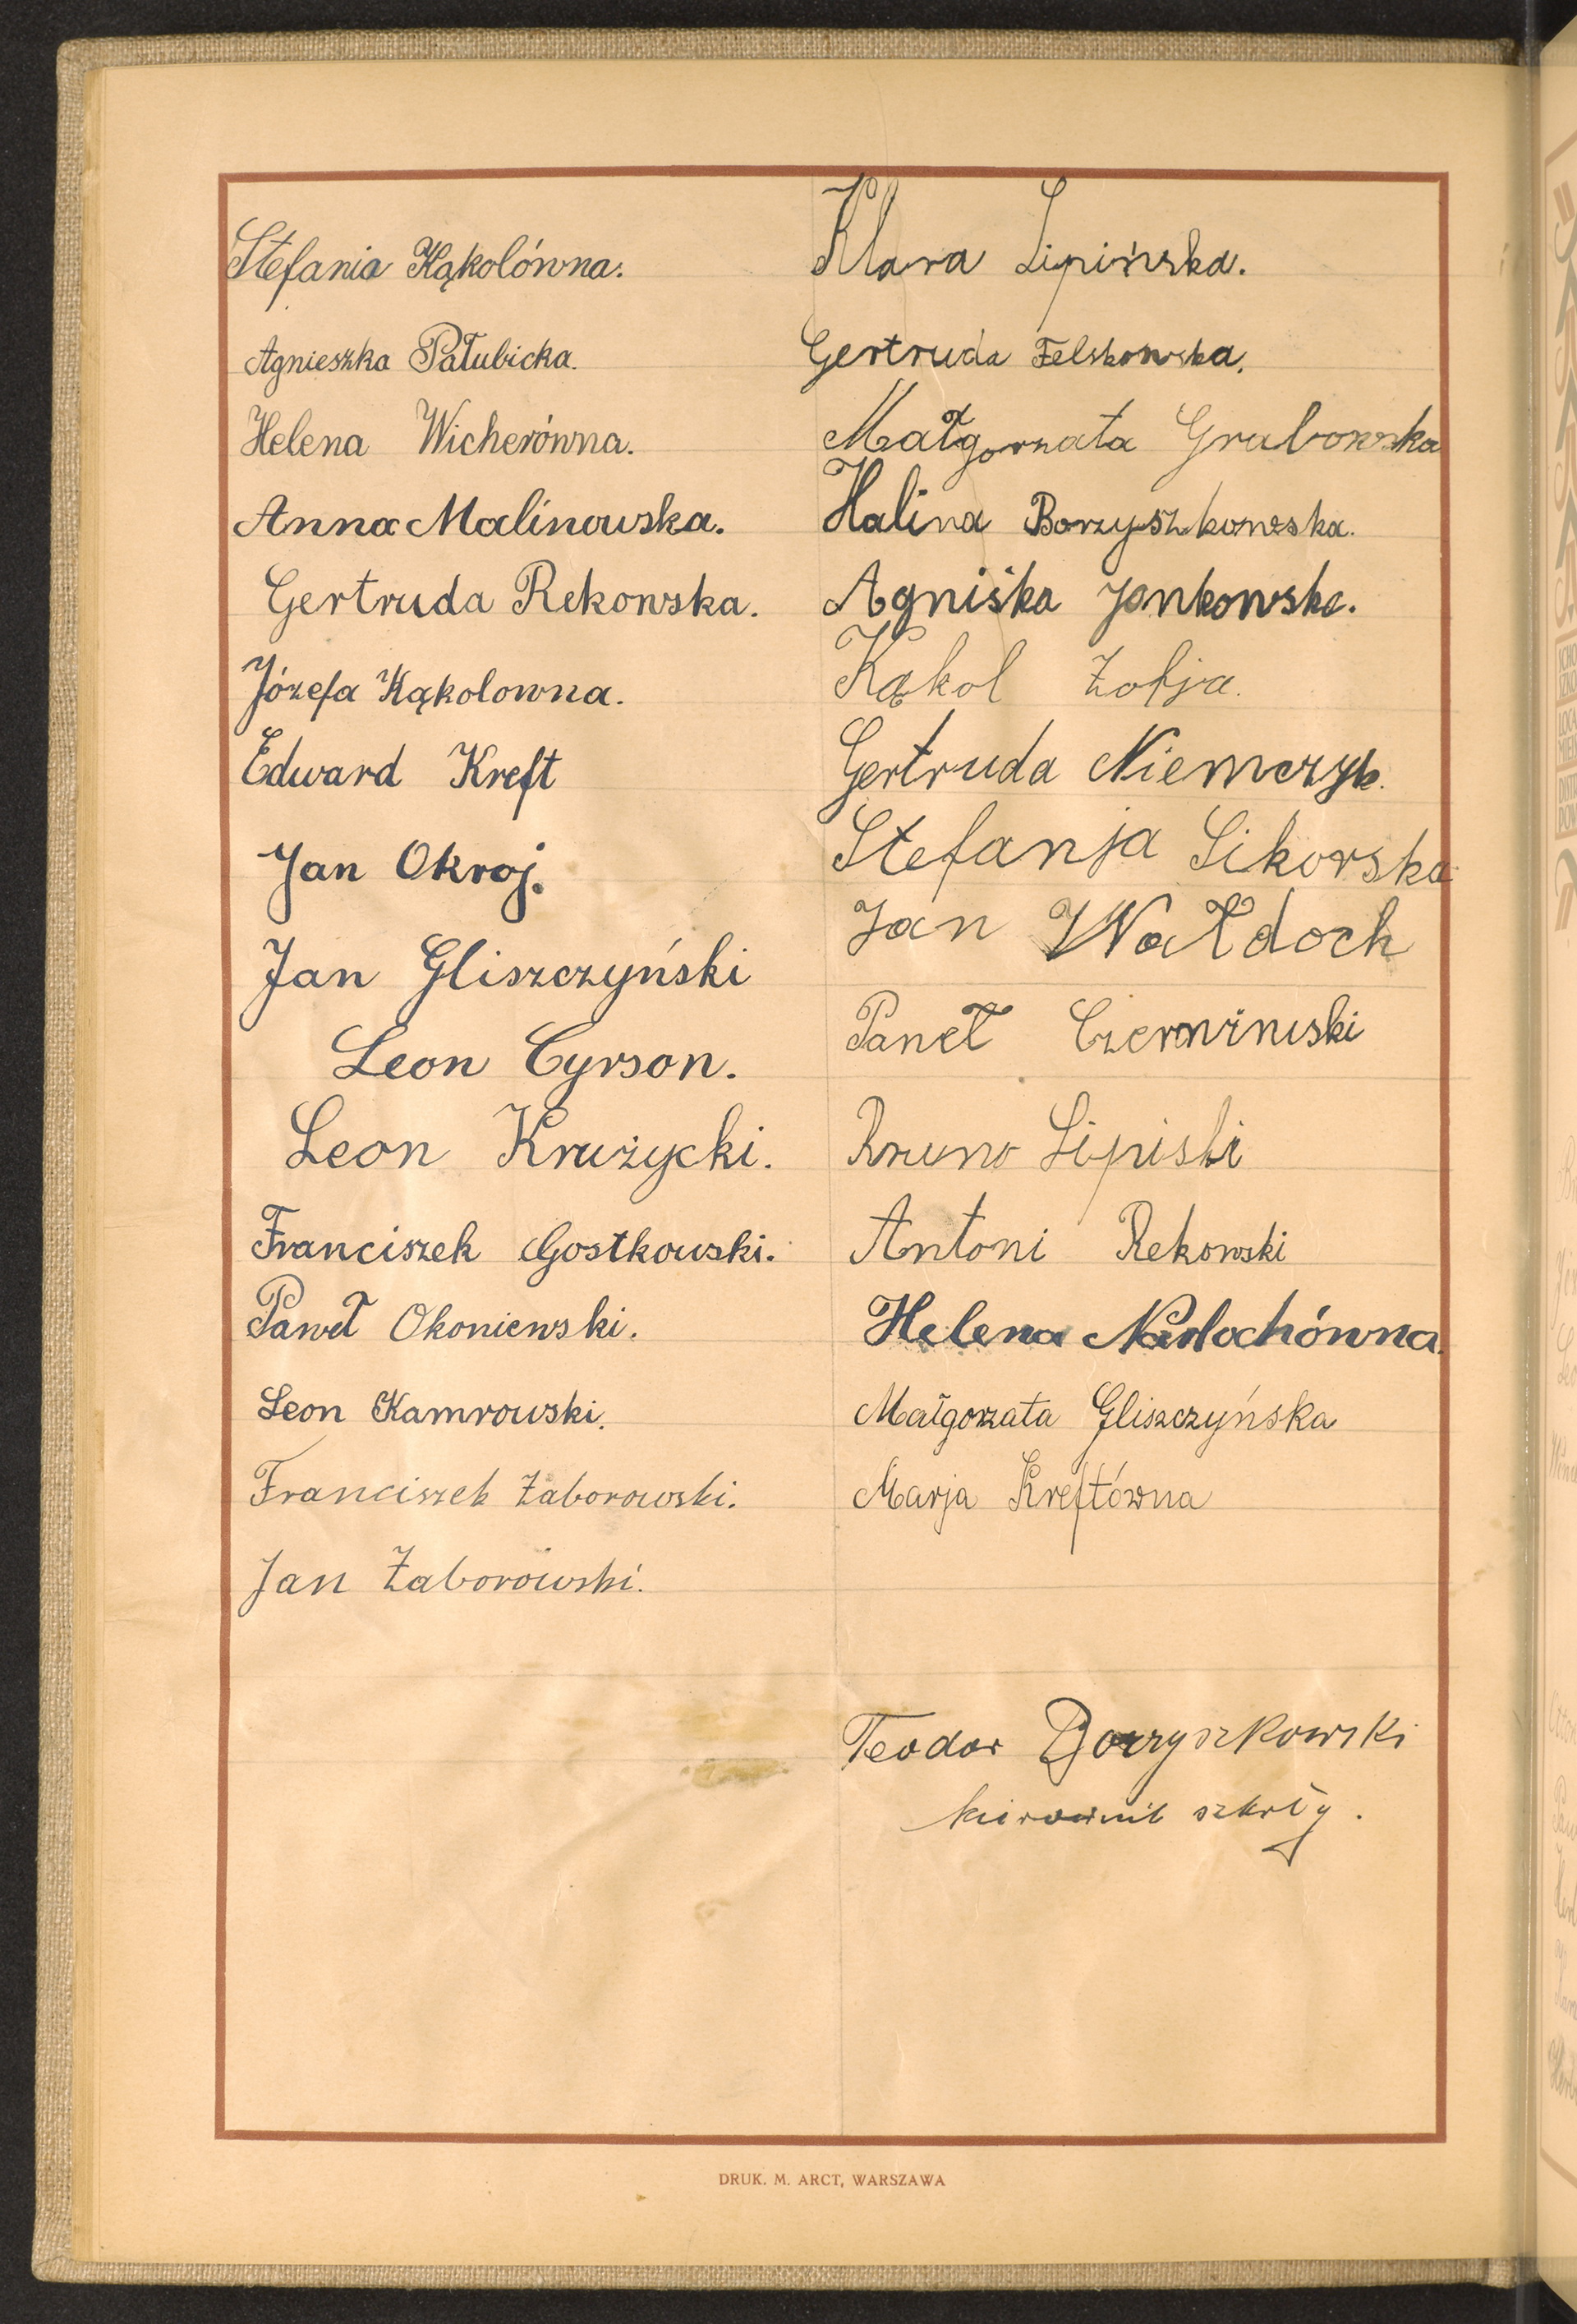 Stefania Kąkolówna.
Agnieszka Pałubicka.
Helena Wicherówna.
Anna Malinowska.
Gertruda Rekowska.
Józefa Kąkolowna.
Edward Kreft
Jan Okroj.
Jan Gliszczyński
Leon Cyrson.
Leon Krużycki.
Franciszek Gostkowski.
Paweł Okoniewski.
Leon Kamrowski.
Franciszek Zaborowski.
Jan Zaborowski.
Klara Lipińska.
Gertruda Felskowska.
Małgorzata Grabowska
Halina Borzyszkowska.
Agniśka Jankowska.
Kąkol Zofja.
Gertruda Niemczyk.
Stefanja Sikorska
Jan Wałdoch
Paweł
Bruno Lipiski
Antoni Rekowski
Helena Narlochówna.
Małgorzata Gliszczyńska
Marja Kreftówna
Teodor Borzyszkowski
kierownik szkoły.
DRUK. M. ARCT, WARSZAWA